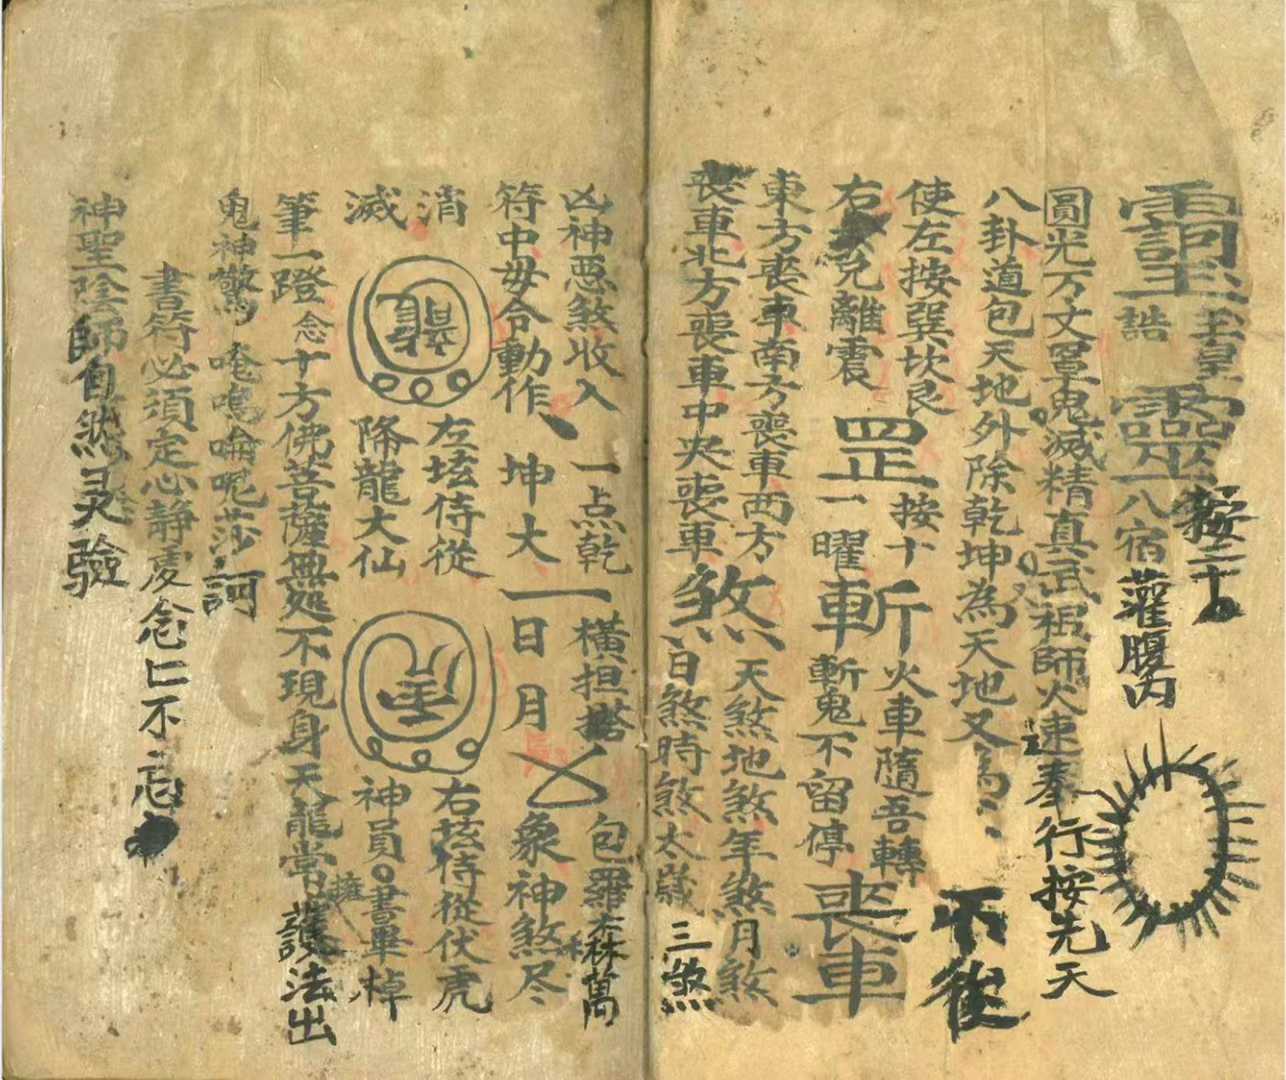 玉皇
誥
按二十
八宿
灌腹内
圓光万丈罩鬼滅精真武祖師火速奉行按先天
八卦道包天地外除乾坤為天地又為
不後
使左按巽坎艮
右兌離震
罡
按十
一曜
斬
火車隨吾轉
斬鬼不留停
喪車
東方喪車南方喪車西方
喪車北方喪車中央喪車
煞
天煞地煞年煞月煞
日煞時煞太歲
三煞
凶神惡煞收入
符中毋令動作
一点乾
坤大
一
横担
日月
包羅森萬
象神煞尽
消
滅
左坛侍從
降龍大仙
右坛侍從伏虎
神員書畢棹
筆一蹬念十方佛菩薩無処不現身天龍常擁護法出
鬼神驚唵嗚唵呢莎訶
書符必須定心静慮念仁不忘
神聖陰師自然灵驗